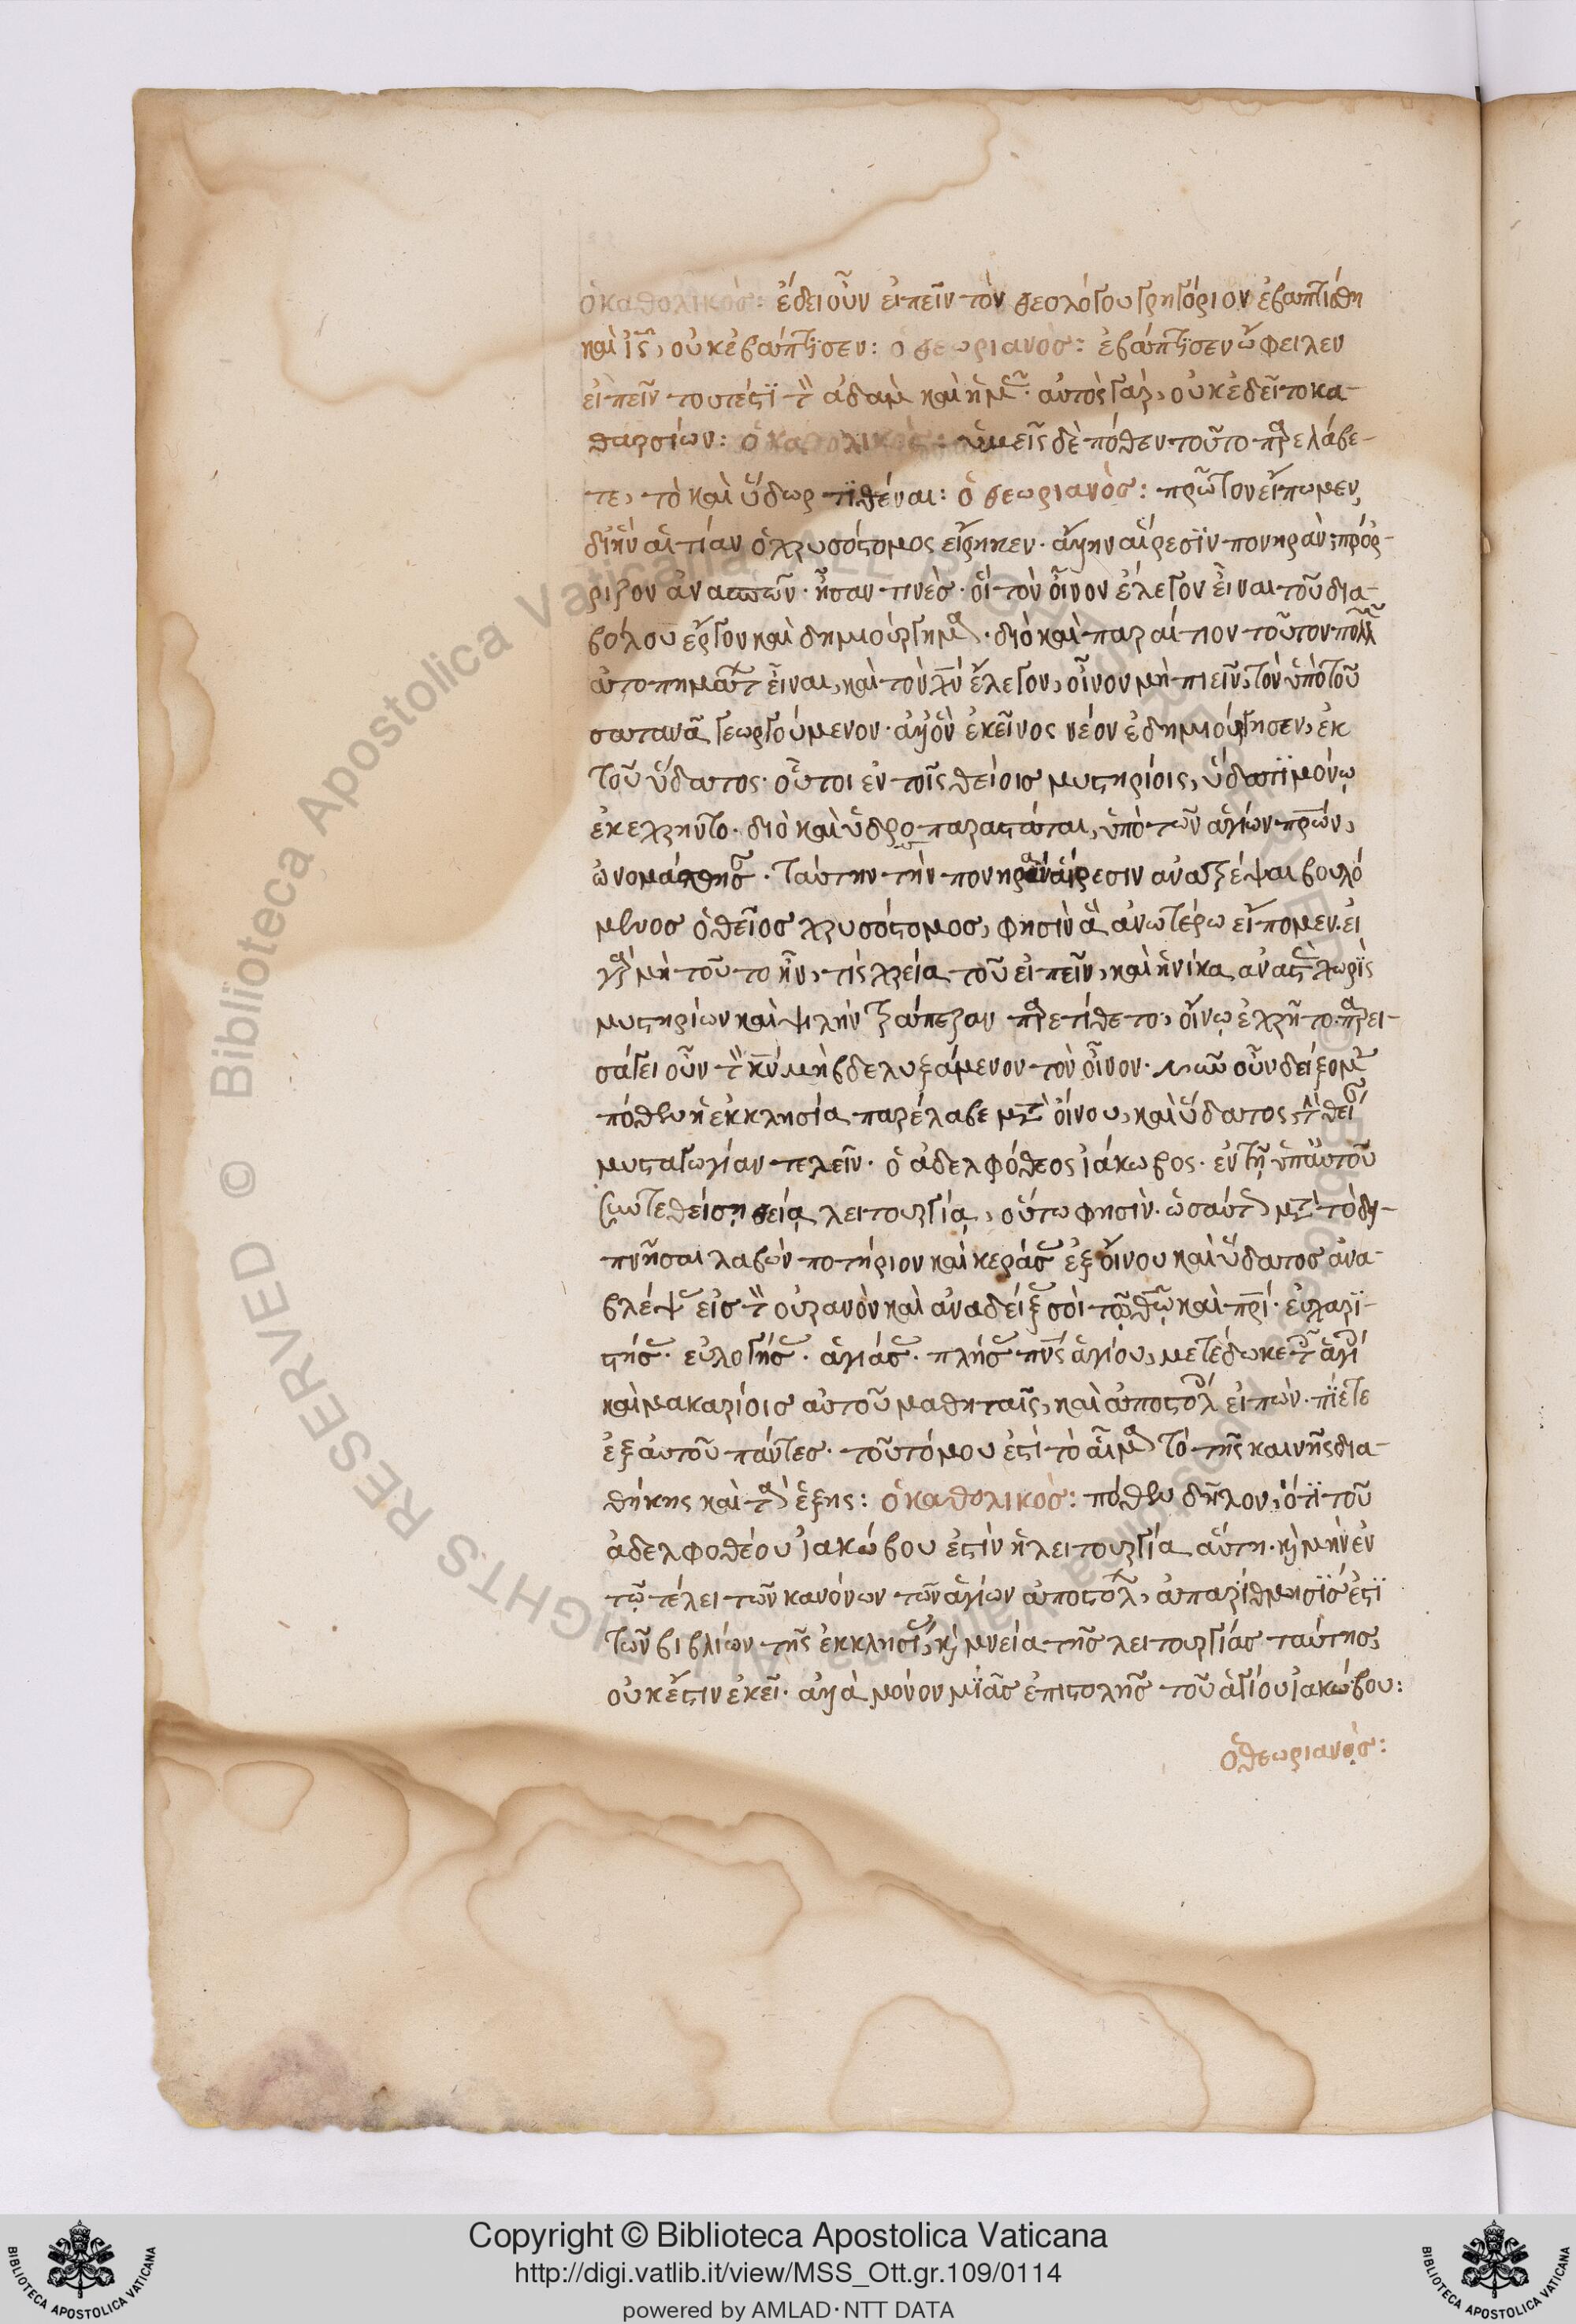 ὁ καθολικός: ἔδει οὖν εἰπεῖν τὸν θεολόγου γρηγόριον ἐβαπτίσθη
καὶ ἰς̄, οὐκ ἐβάπτισεν: ὁ θεωριανὸς: ἐβάπτισεν ὤφειλεν
εἰπεῖν τουτέστι τὸν ἀδὰμ καὶ ἡμᾶς· αὐτὸς γὰρ, οὐκ ἐδεῖτο κα-
θαρσίων: ὁ καθολικὸς: ὑμεῖς δὲ πόθεν τοῦτο παρελάβε-
τε, τὸ καὶ ὕδωρ τιθέναι: ὁ θεωριανὸς: πρῶτον εἴπωμεν,
δι' ἣν αἰτίαν ὁ χρυσόστομος εἴρηκεν· ἄλλην αἵρεσιν πονηρὰν πρόρ-
ριζον ἀνασπῶν· ἦσαν τινὲς· οἳ τὸν οἶνον ἔλεγον εἶναι τοῦ δια-
βόλου ἔργον καὶ δημιούργημα· διὸ καὶ παραίτιον τοῦτον πολλῶν
ἀτοπημάτων εἶναι, καὶ τὸν χν̄ ἔλεγον, οἶνον μὴ πιεῖν, τὸν ὑπὸ τοῦ
σατανᾶ γεωργούμενον· ἀλλ' ὃν ἐκεῖνος νέον ἐδημιούργησεν, ἐκ
τοῦ ὕδατος· οὗτοι ἐν τοῖς θείοις μυστηρίοις, ὕδατι μόνῳ
ἐκέχρηντο· διὸ καὶ ὑδροπαραστάται, ὑπὸ τῶν ἁγίων πρ̄ων,
ὠνομάσθησαν· ταύτην τὴν πονηρὰν αἵρεσιν ἀνατρέψαι βουλό
μενος ὁ θεῖος χρυσόστομος, φησὶν ἃ ἀνωτέρω εἴπομεν· εἰ
γὰρ μὴ τοῦτο ἦν, τίς χρεία τοῦ εἰπεῖν, καὶ ἡνίκα ἀναστὰς χωρὶς
μυστηρίων καὶ ψιλὴν τράπεζαν παρετίθετο, οἴνῳ ἐχρῆτο· παρει-
σάγει οὖν τὸν κν̄ μὴ βδελυξάμενον τὸν οἶνον· νῦν οὖν δείξομεν
πόθεν ἡ ἐκκλησία παρέλαβε μετὰ οἴνου, καὶ ὕδατος, τὴν θείαν
μυσταγωγίαν τελεῖν· ὁ ἀδελφόθεος ἰάκωβος· ἐν τῇ ὑπ' αὐτοῦ
συντεθείσῃ θείᾳ λειτουργίᾳ, οὕτω φησὶν· ὡσαύτως μετὰ τὸ δει-
πνῆσαι λαβὼν ποτήριον καὶ κεράσας ἐξ οἴνου καὶ ὕδατος ἀνα-
βλέψας εἰς τὸν οὐρανὸν καὶ ἀναδείξας σοὶ τῷ θῶ καὶ πρί· εὐχαρι-
στήσας· εὐλογήσας· ἁγιάσας· πλήσας πν̄ς ἁγίου, μετέδωκε τοῖς ἁγίοις
καὶ μακαρίοις αὐτοῦ μαθηταῖς, καὶ ἀποστόλοις εἰπών· πίετε
ἐξ αὐτοῦ πάντες· τοῦτό μου ἐστὶ τὸ αἷμα τὸ τῆς καινῆς δια-
θήκης καὶ τὰ ἑξῆς: ὁ καθολικὸς: πόθεν δῆλον, ὅτι τοῦ
ἀδελφοθέου ἰακώβου ἐστὶν ἡ λειτουργία αὕτη· καὶ μὴν ἐν
τῷ τέλει τῶν κανόνων τῶν ἁγίων ἀποστόλων, ἀπαρίθμησίς ἐστι
τῶν βιβλίων τῆς ἐκκλησίας, καὶ μνεία τῆς λειτουργίας ταύτης,
οὐκ ἔστιν ἐκεῖ· ἀλλὰ μόνον μιᾶς ἐπιστολῆς τοῦ ἁγίου ἰακώβου:
ὁ θεωριανός:
Copyright © Biblioteca Apostolica Vaticana
http://digi.vatlib.it/view/MSS_Ott.gr.109/0114
powered by AMLAD·NTT DATA